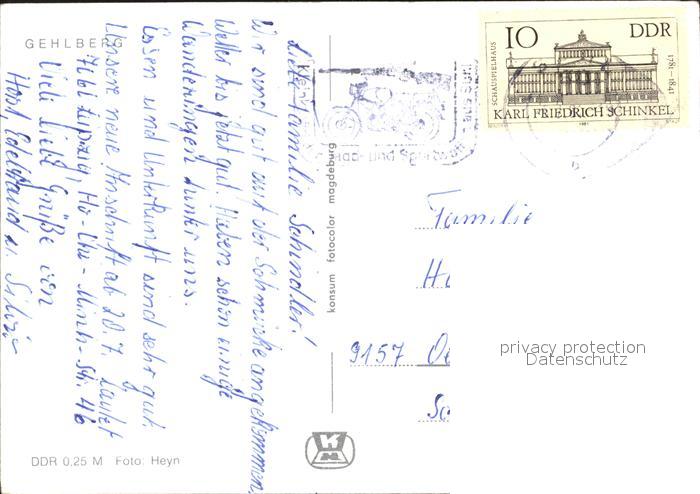 GEHLBERG
Liebe Familie Schindler!
Wir sind gut auf der Schmücke angekommen.
Wetter bis jetzt gut. Haben schon einige
Wanderungen hinter uns.
Essen und Unterkunft sind sehr gut.
Unsere neue Anschrift ab 20.7. lautet
Leipzig, Ho-Chi-Minh-Str. 46
Viele liebe Grüße von
Horst, Edeltraud u. Silvio
DDR 0,25 M Foto: Heyn
konsum fotocolor magdeburg
und Sportw
10 DDR
SCHAUSPIELHAUS
1781-1841
KARL FRIEDRICH SCHINKEL
1981
Familie
9157
privacy protection
Datenschutz